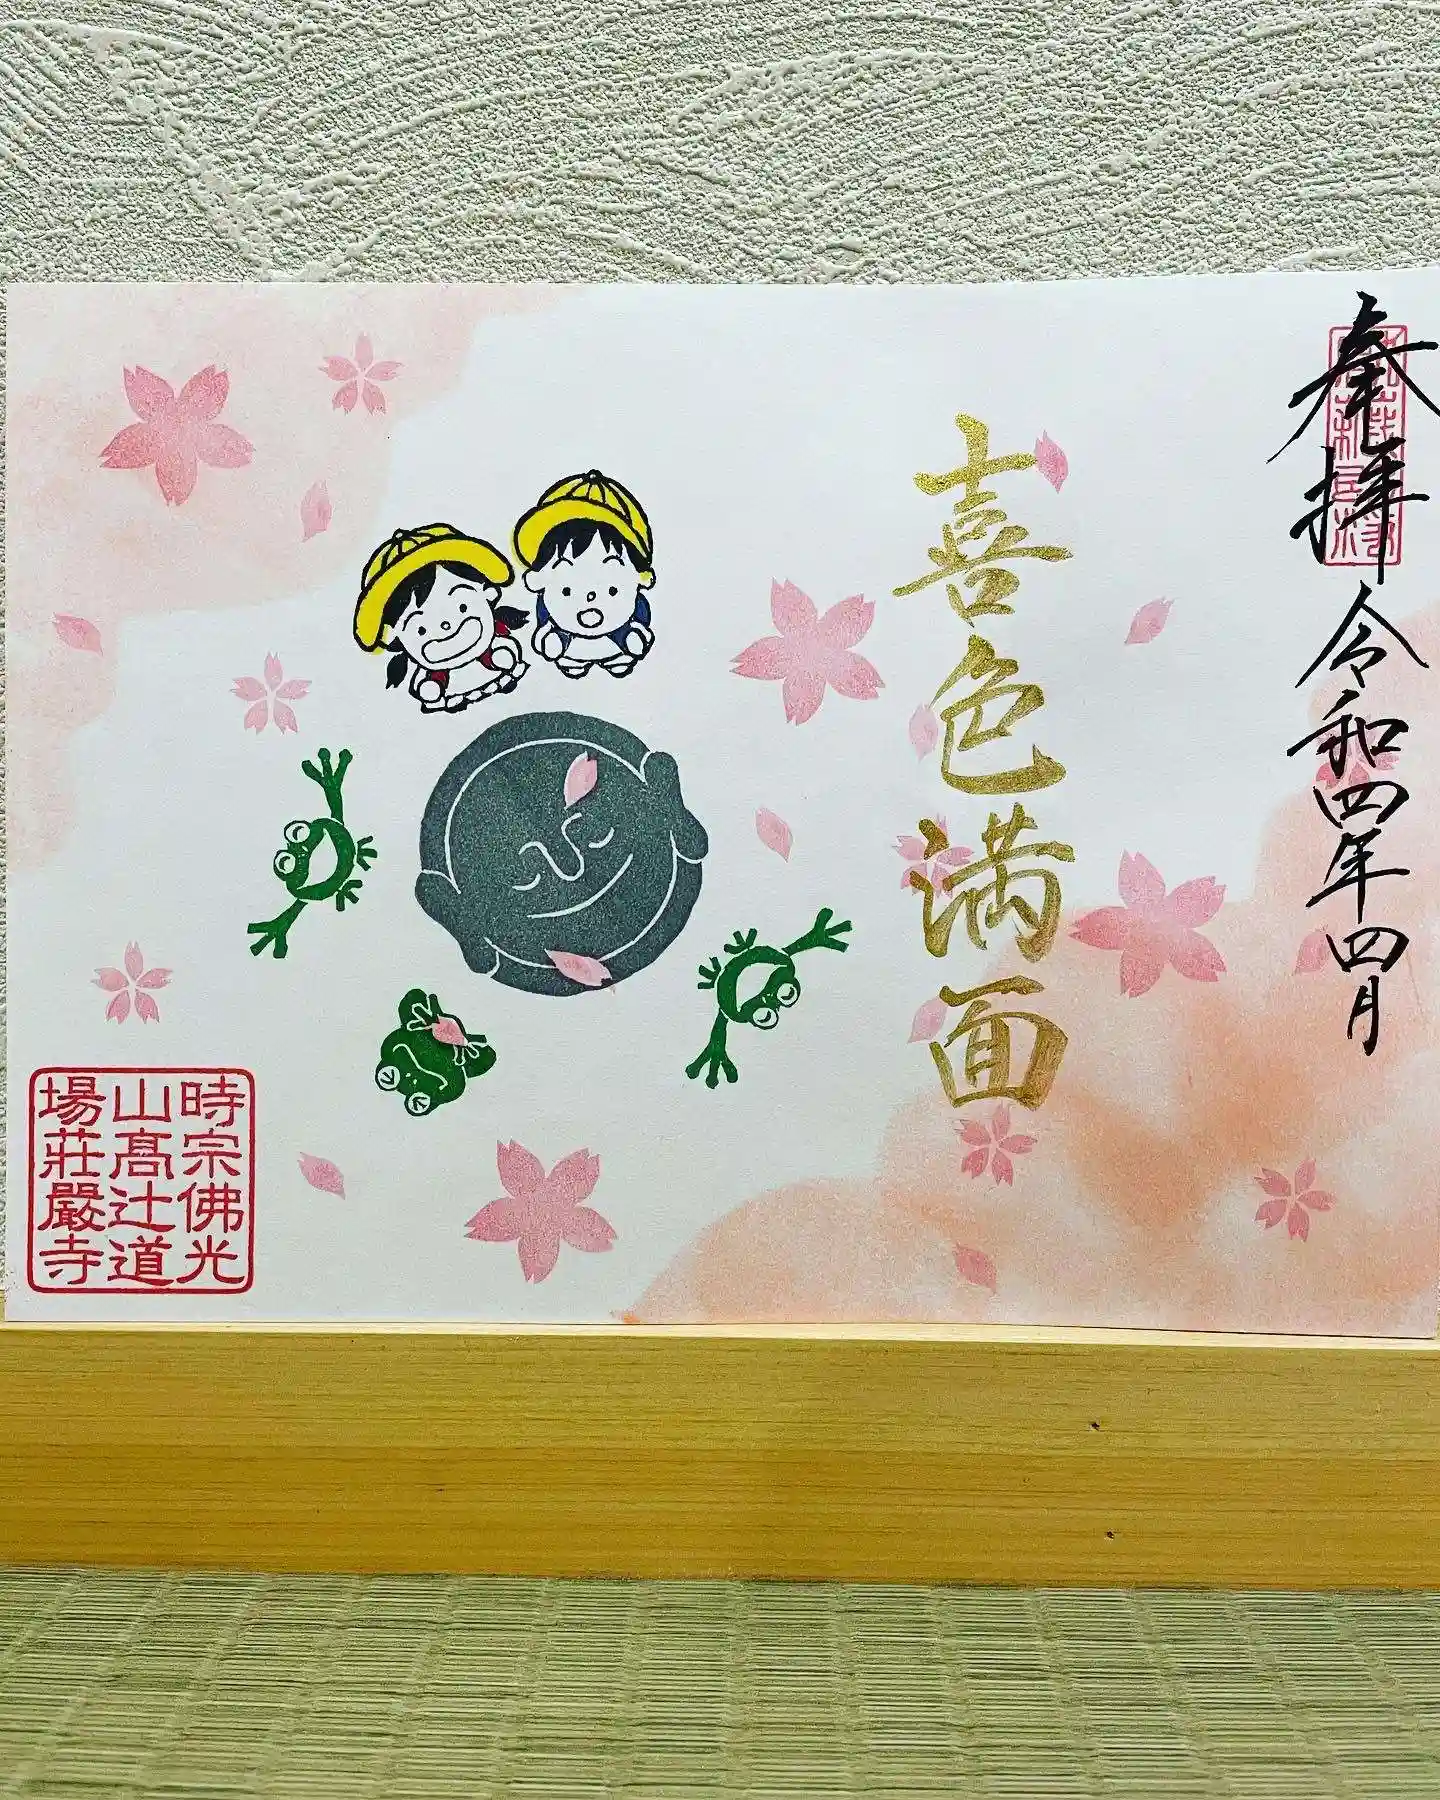 奉拝
令和四年四月
喜色満面
時宗佛光
山髙辻道
場莊嚴寺